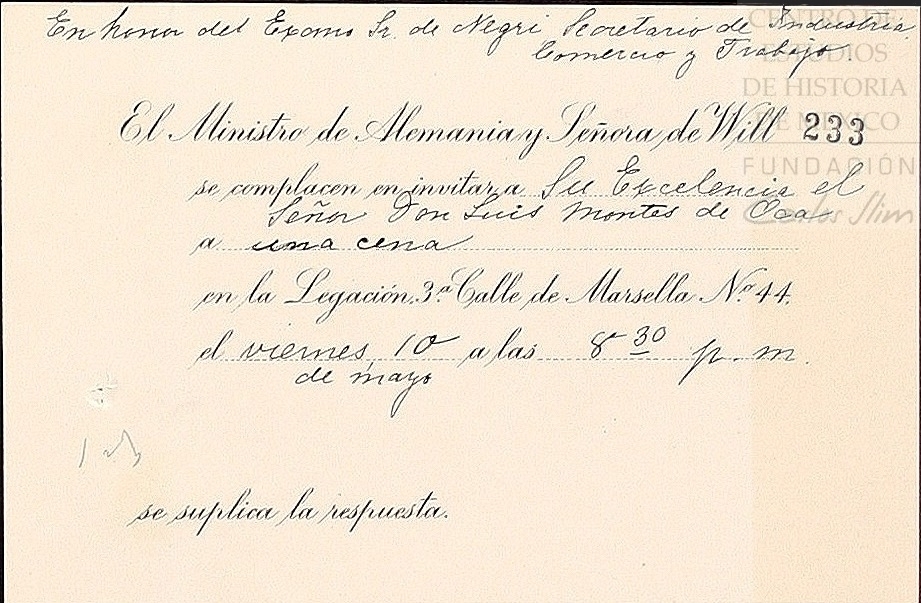 En honor del Excmo Sr. de Negri Secretario de Industria,
Comercio y Trabajo.
CENTRO DE
ESTUDIOS
DE HISTORIA
DE MÉXICO
FUNDACIÓN
Carlos Slim
El Ministro de Alemania y Señora de Will 233
se complacen en invitar a Su Excelencia el
Señor Don Luis Montes de Oca
a una cena
en la Legación, 3ª Calle de Marsella Nº 44.
el viernes 10 a las 8 30 p. m.
de mayo
se suplica la respuesta.